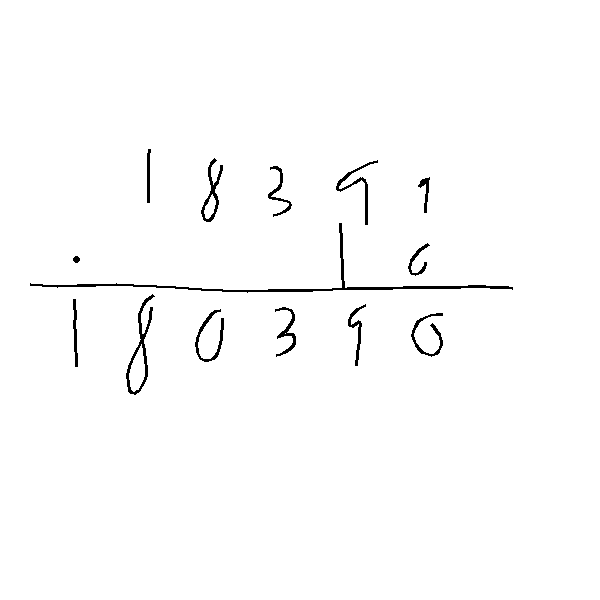 18399
. 10
180390